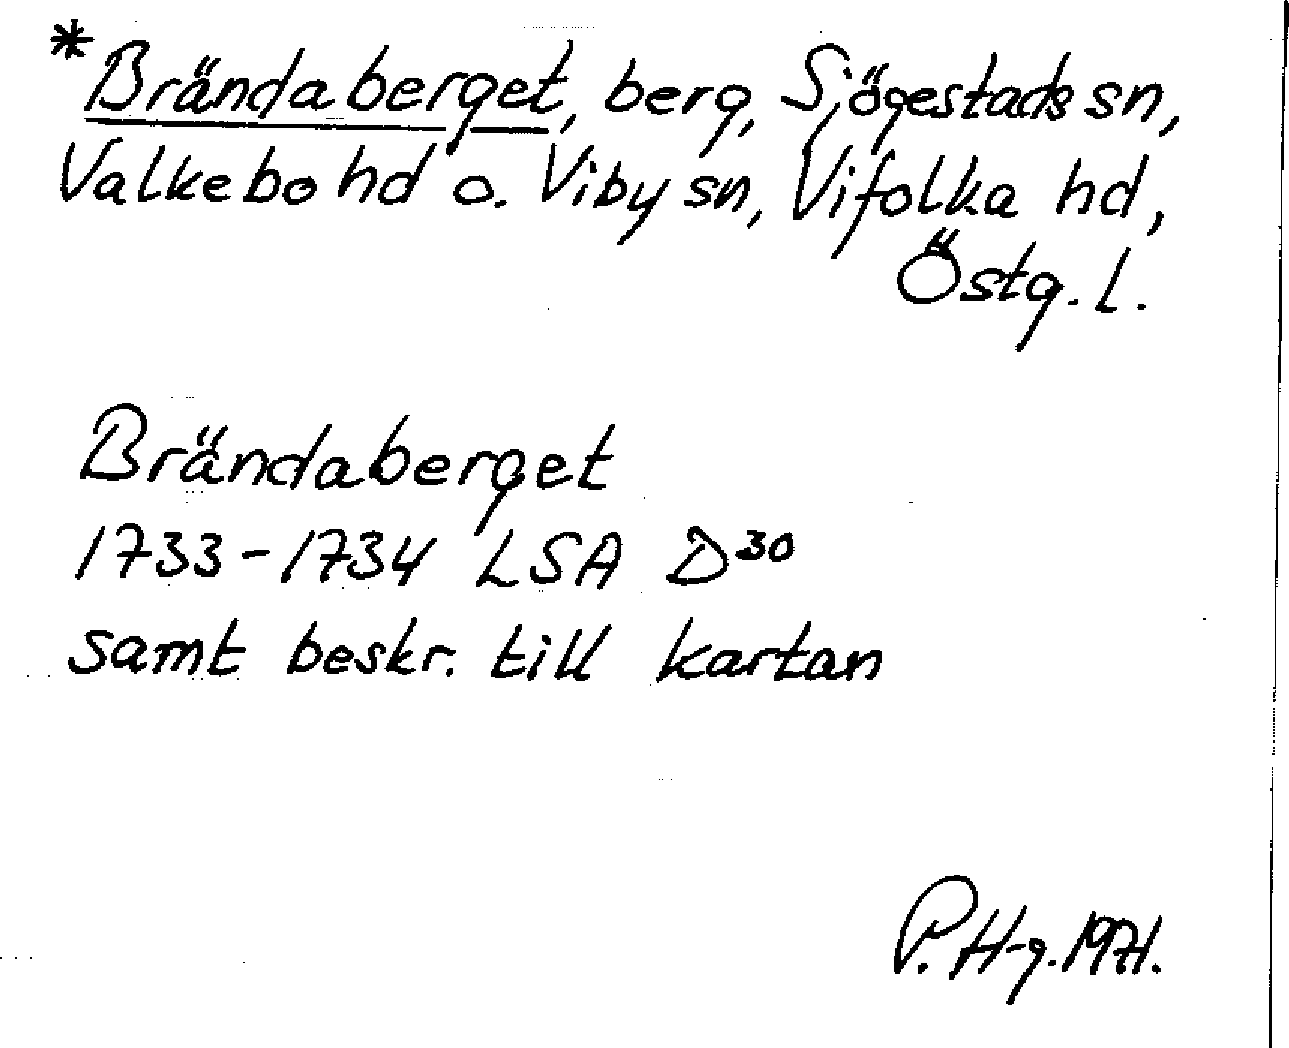 *Brändaberget, berg, Sjögestads sn,
Valkebo hd o. Viby sn, Vifolka hd,
Östg. l.
Brändaberget
1733-1734 LSA D30
samt beskr. till kartan
P. H-g. 1971.